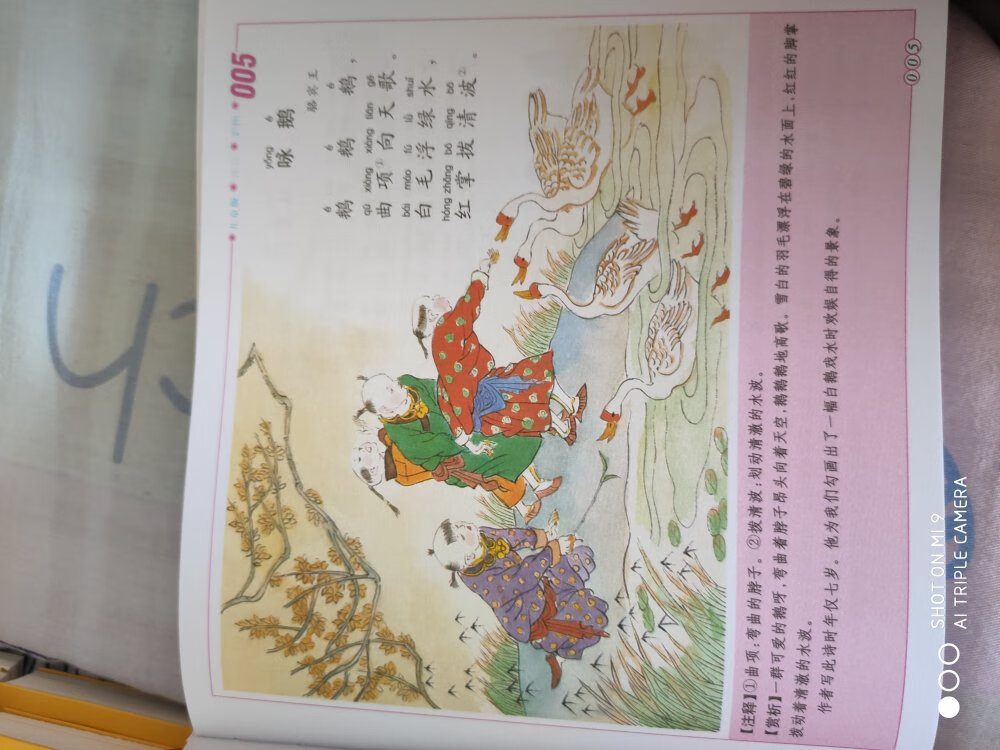 005
yǒng é
咏 鹅
骆宾王
é é é
鹅 鹅 鹅，
qū xiàng xiàng tiān gē
曲 项① 向 天 歌。
bái máo fú lǜ shuǐ
白 毛 浮 绿 水，
hóng zhǎng bō qīng bō
红 掌 拨 清 波②。
【注释】①曲项：弯曲的脖子。②拨清波：划动清澈的水波。
【赏析】一群可爱的鹅呀，弯曲着脖子昂头向着天空，鹅鹅鹅地高歌。雪白的羽毛漂浮在碧绿的水面上，红红的脚掌
拨动着清澈的水波。
作者写此诗时年仅七岁。他为我们勾画出了一幅白鹅戏水时欢娱自得的景象。
005
SHOT ON MI 9
AI TRIPLE CAMERA